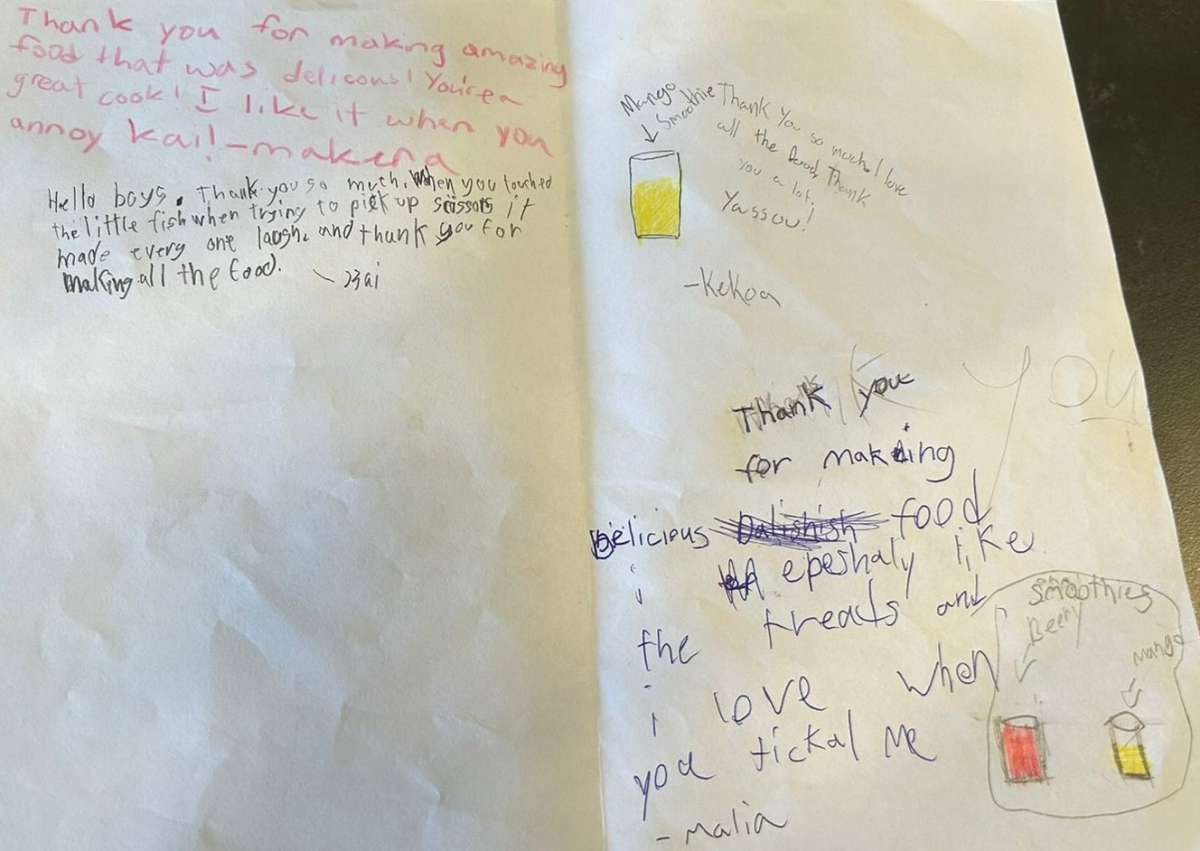 Thank you for making amazing
food that was delicous! You're a
great cook! I like it when you
annoy kai! -makena
Hello boys. Thank you so much. When you touched
the little fish when trying to pick up scissors it
made every one laugh, and thank you for
making all the food.
Mango
Smoothie
Thank You so much. I love
all the food. Thank
you a lot.
Yassou!
-Kekoa
You
Thank you
for making
Delicious Dalishish food
i epeshaly like
the treats and
i love when
you tickal me
-malia
Smoothies
Beery
mango